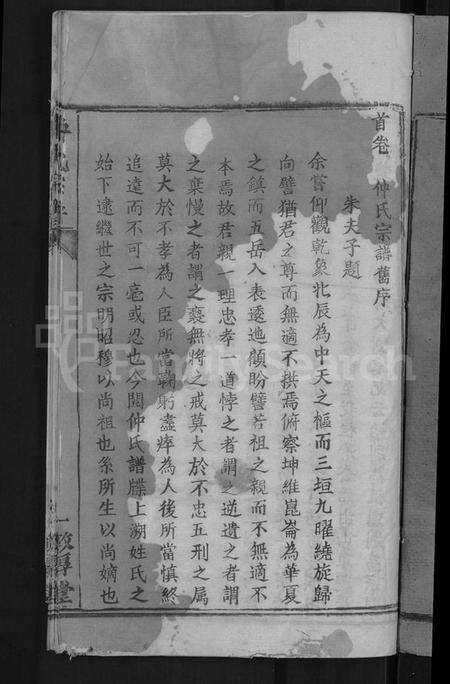 首卷 仲氏宗譜舊序
朱夫子題
余嘗仰觀乾象北辰為中天之樞而三垣九曜繞旋歸
向譬猶君之尊而無適不拱焉俯察坤維崑崙為華夏
之鎮而五岳入表遞迤顧盼譬若祖之親而不無適不
本焉故君親一理忠孝一道悖之者謂之逆遺之者謂
之棄慢之者謂之褻無將之戒莫大於不忠五刑之属
莫大於不孝為人臣所當鞠躬盡瘁為人後所當慎終
追遠而不可一毫或忽也今閱仲氏譜牒上溯姓氏之
始下逮繼世之宗明昭穆以尚祖也系所生以尚嫡也
FamilySearch